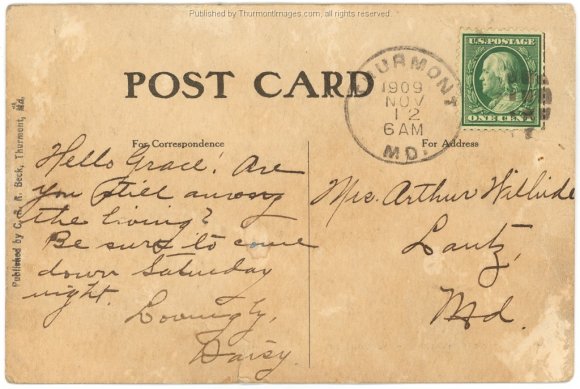 Published by ThurmontImages.com, all rights reserved
POST CARD
THURMONT
1909
NOV
12
6AM
MD.
U.S. POSTAGE
ONE CENT
Published by C. R. Beck, Thurmont, Md.
For Correspondence
Hello Grace! Are
you still among
the living?
Be sure to come
down Saturday
night.
Lovingly,
Daisy.
For Address
Mrs. Arthur
Lantz,
Md.